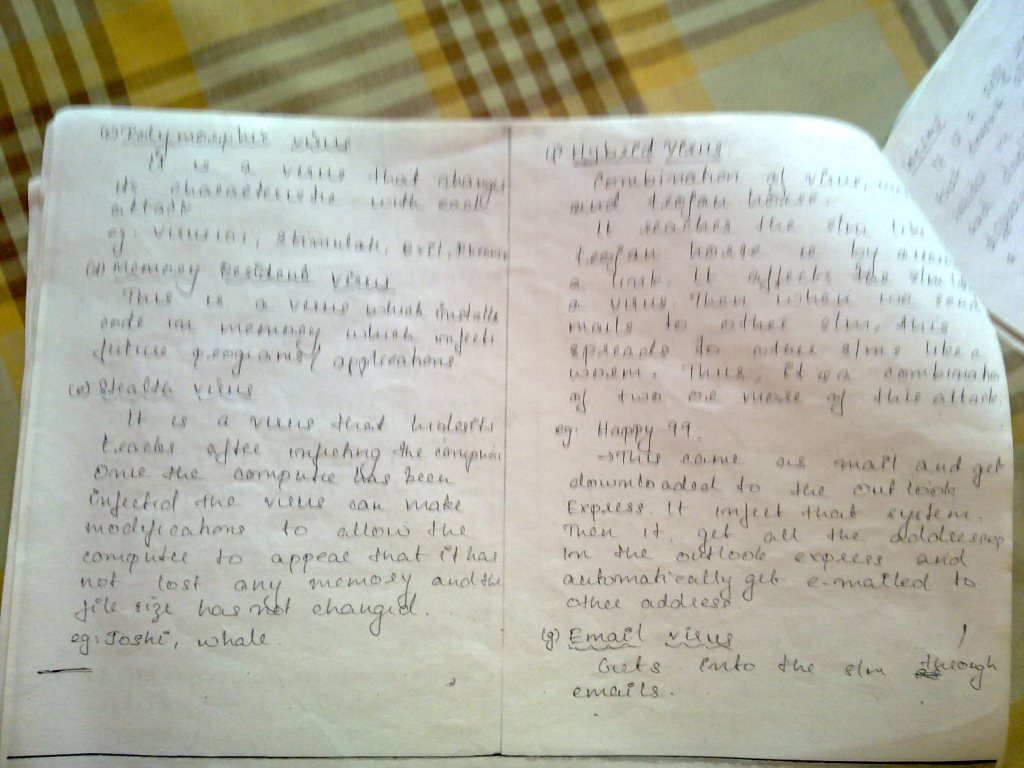 Polymorphic virus
It is a virus that changes
its characteristic with each
attack
eg: stimulate, Evil,
(d) Memory Resident Virus
This is a virus which installs
code in memory which infects
future programs/ applications
(e) Stealth Virus
It is a virus that
tracks after infecting the
Once the computer has been
infected the virus can make
modifications to allow the
computer to appear that it has
not lost any memory and the
file size has not changed.
eg: Joshi, whale.
(f) Hybrid Virus
Combination of virus,
and trojan horse.
It reaches the s/m
trojan horse is by
a link. It affects the s/m
a virus. Then when we send
mails to other s/m, this
spreads to other s/ms like a
worm. Thus, it is a
of two or more of this attack.
eg: Happy 99.
→This came as mail and get
downloaded to the outlook
Express. It infect that system.
Then it get all the addresses
in the outlook express and
automatically get e-mailed to
other address.
(g) Email virus
Gets into the s/m through
emails.